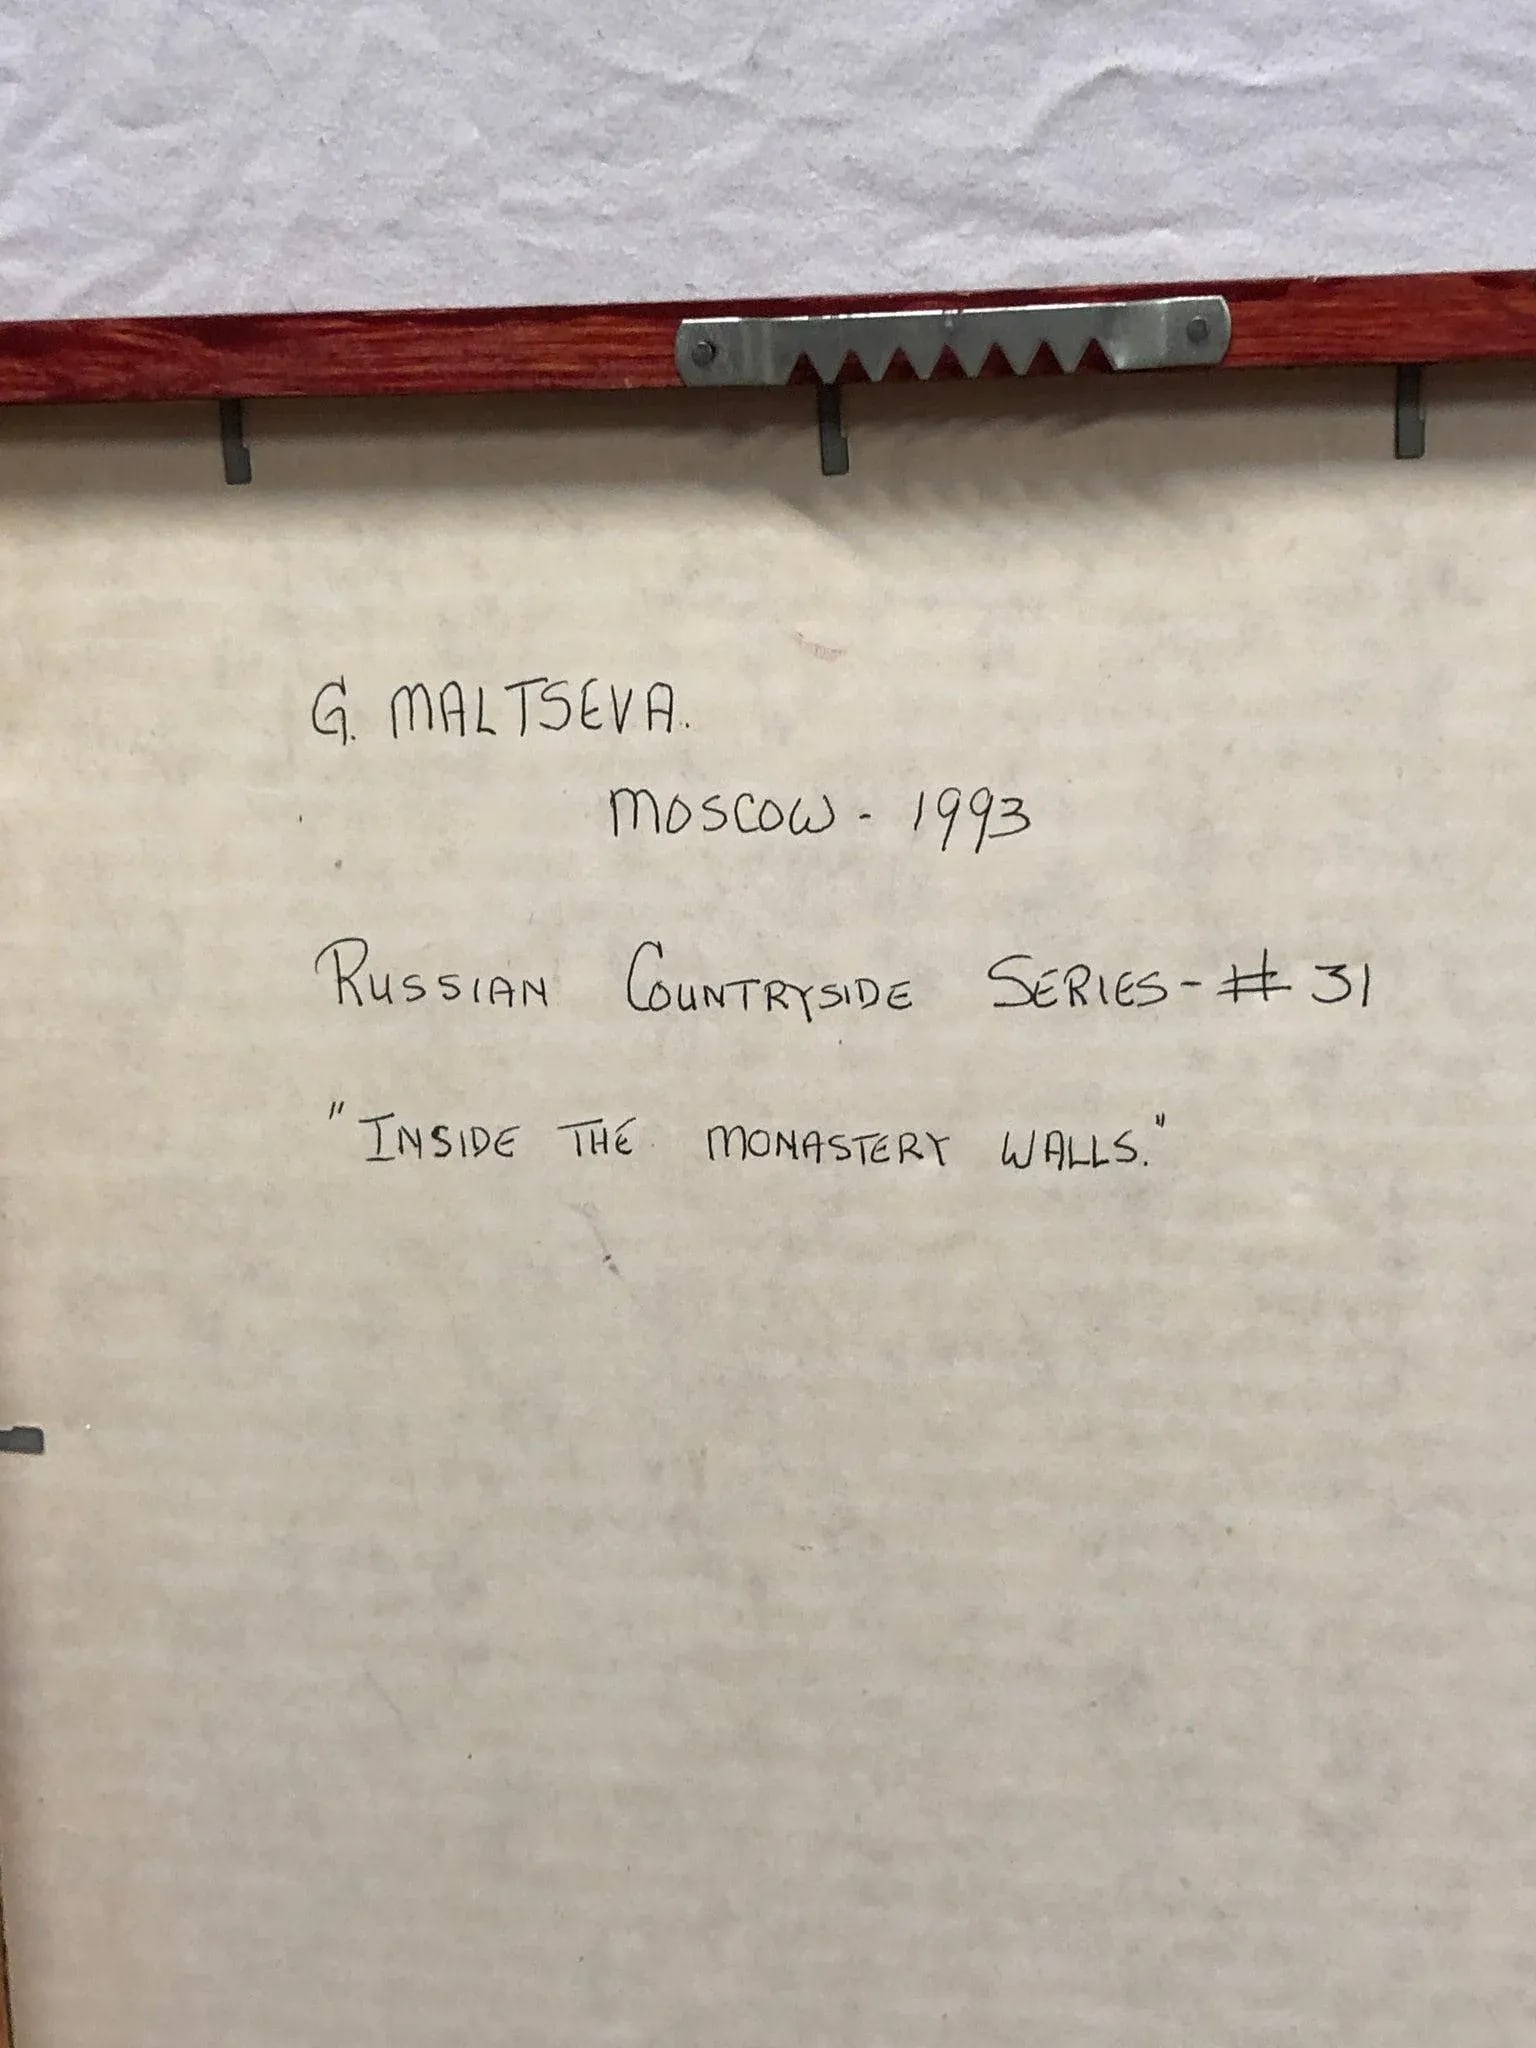 G. MALTSEVA.
MOSCOW - 1993
RUSSIAN COUNTRYSIDE SERIES - # 31
"INSIDE THE MONASTERY WALLS."